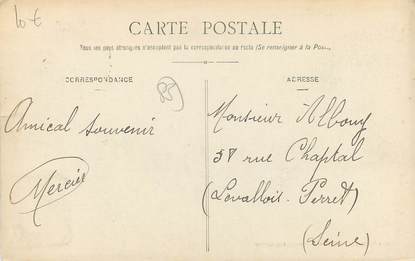 10 €
CARTE POSTALE
Tous les pays étrangers n'acceptent pas la correspondance au recto (Se renseigner à la Pos...
CORRESPONDANCE
ADRESSE
Amical souvenir
Mercier
Monsieur Albouy
58 rue Chaptal
(Levallois-Perret
(Seine)